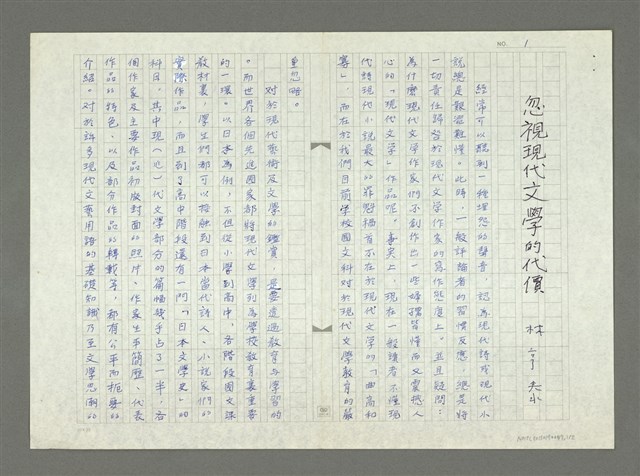 NO. 1
忽視現代文學的代價
林亨泰
經常可以聽到一種埋怨的聲音,認為現代詩或現代小
說總是艱澀難懂。此時,一般評論者的習慣反應,總是將
一切責任歸咎於現代文學作家的寫作態度上。並且疑問:
為什麼現代文學作家們不創作出一些婦孺皆懂而又震撼人
心的「現代文學」作品呢。事實上,現在一般讀者不懂現
代詩現代小說最大的罪魁禍首不在於現代文學的「曲高和
寡」,而在於我們目前學校國文科對於現代文學教育的嚴
重忽略。
對於現代藝術及文學的鑑賞,是要透過教育與學習的
。而世界各個先進國家都將現代文學列為學校教育裏重要
的一環。以日本為例,不但從小學到高中,各階段國文課
教材裏,學生們都可以接觸到日本當代詩人、小說家們的
實際作品,而且到了高中階段還有一門「日本文學史」的
科目,其中現(近)代文學部分的篇幅幾乎占了一半,各
個作家及主要作品初版封面的照片、作家生平簡歷、代表
作品的特色,以及部分作品的轉載等,都有公平而扼要的
介紹。對於許多現代文藝用語的基礎知識乃至文學思潮的